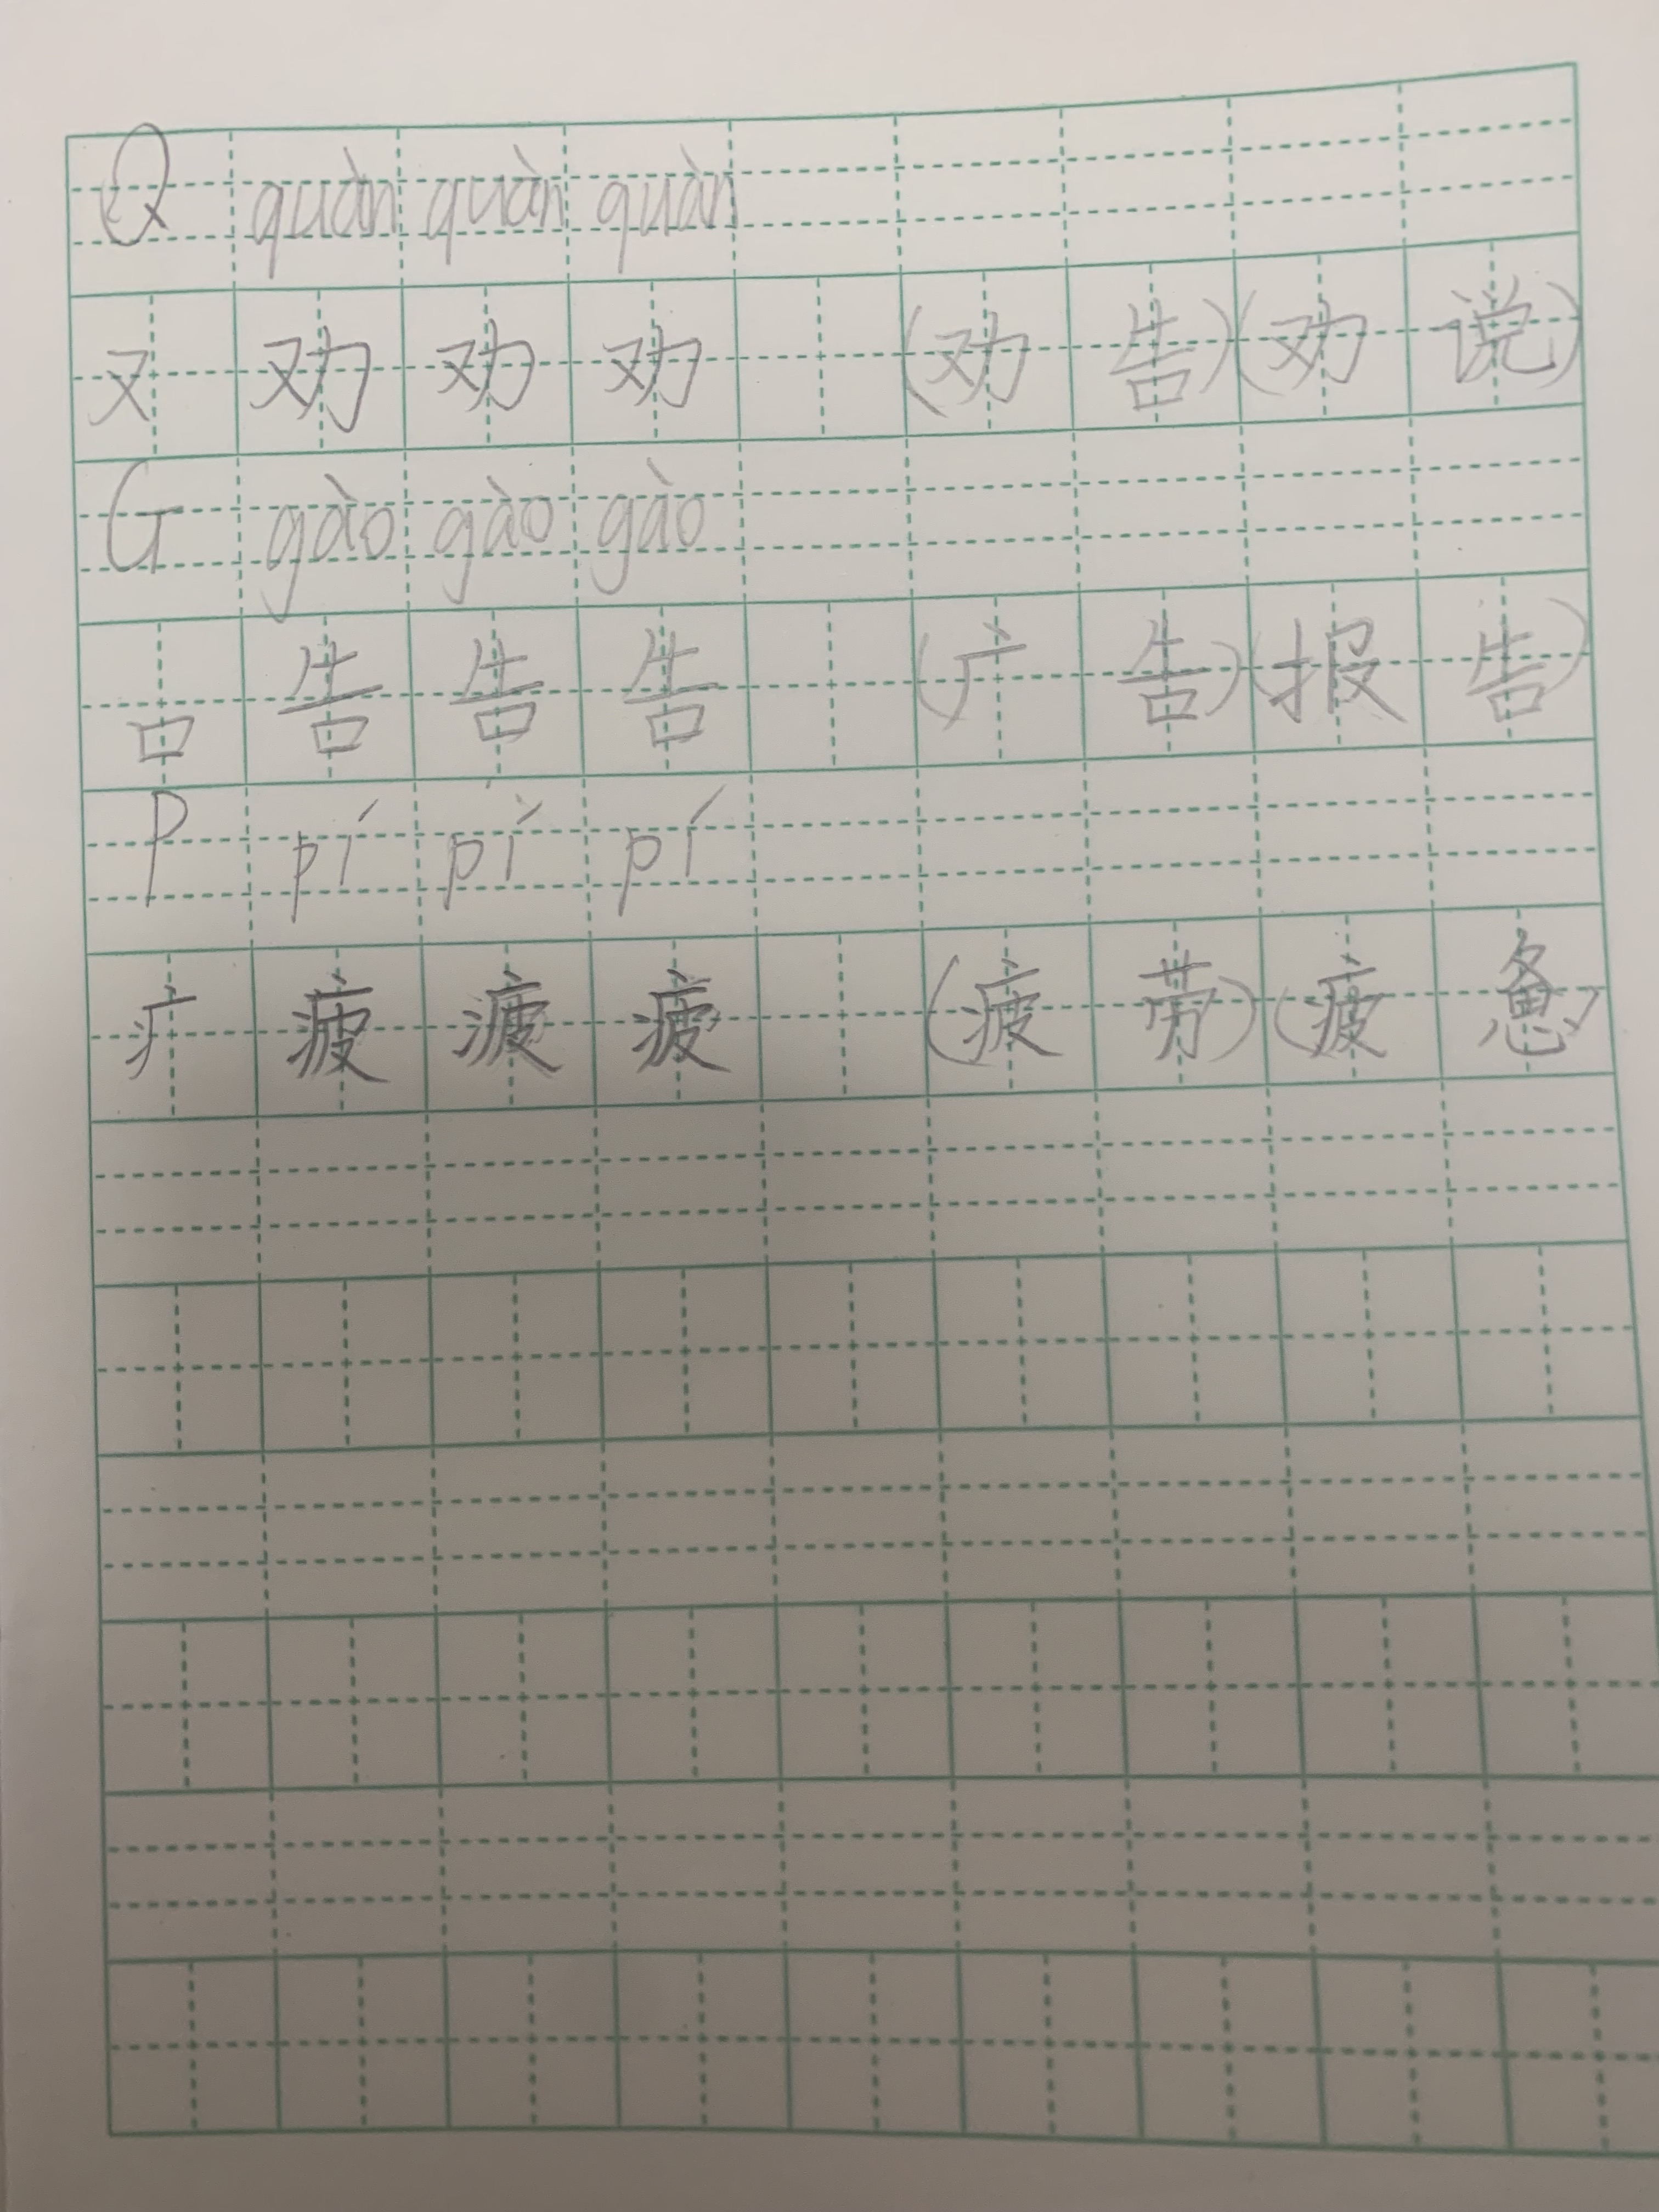 Q quàn quàn quàn
又 劝 劝 劝 (劝告)(劝说)
G gào gào gào
口 告 告 告 (广告)(报告)
P pí pí pí
疒 疲 疲 疲 (疲劳)(疲惫)